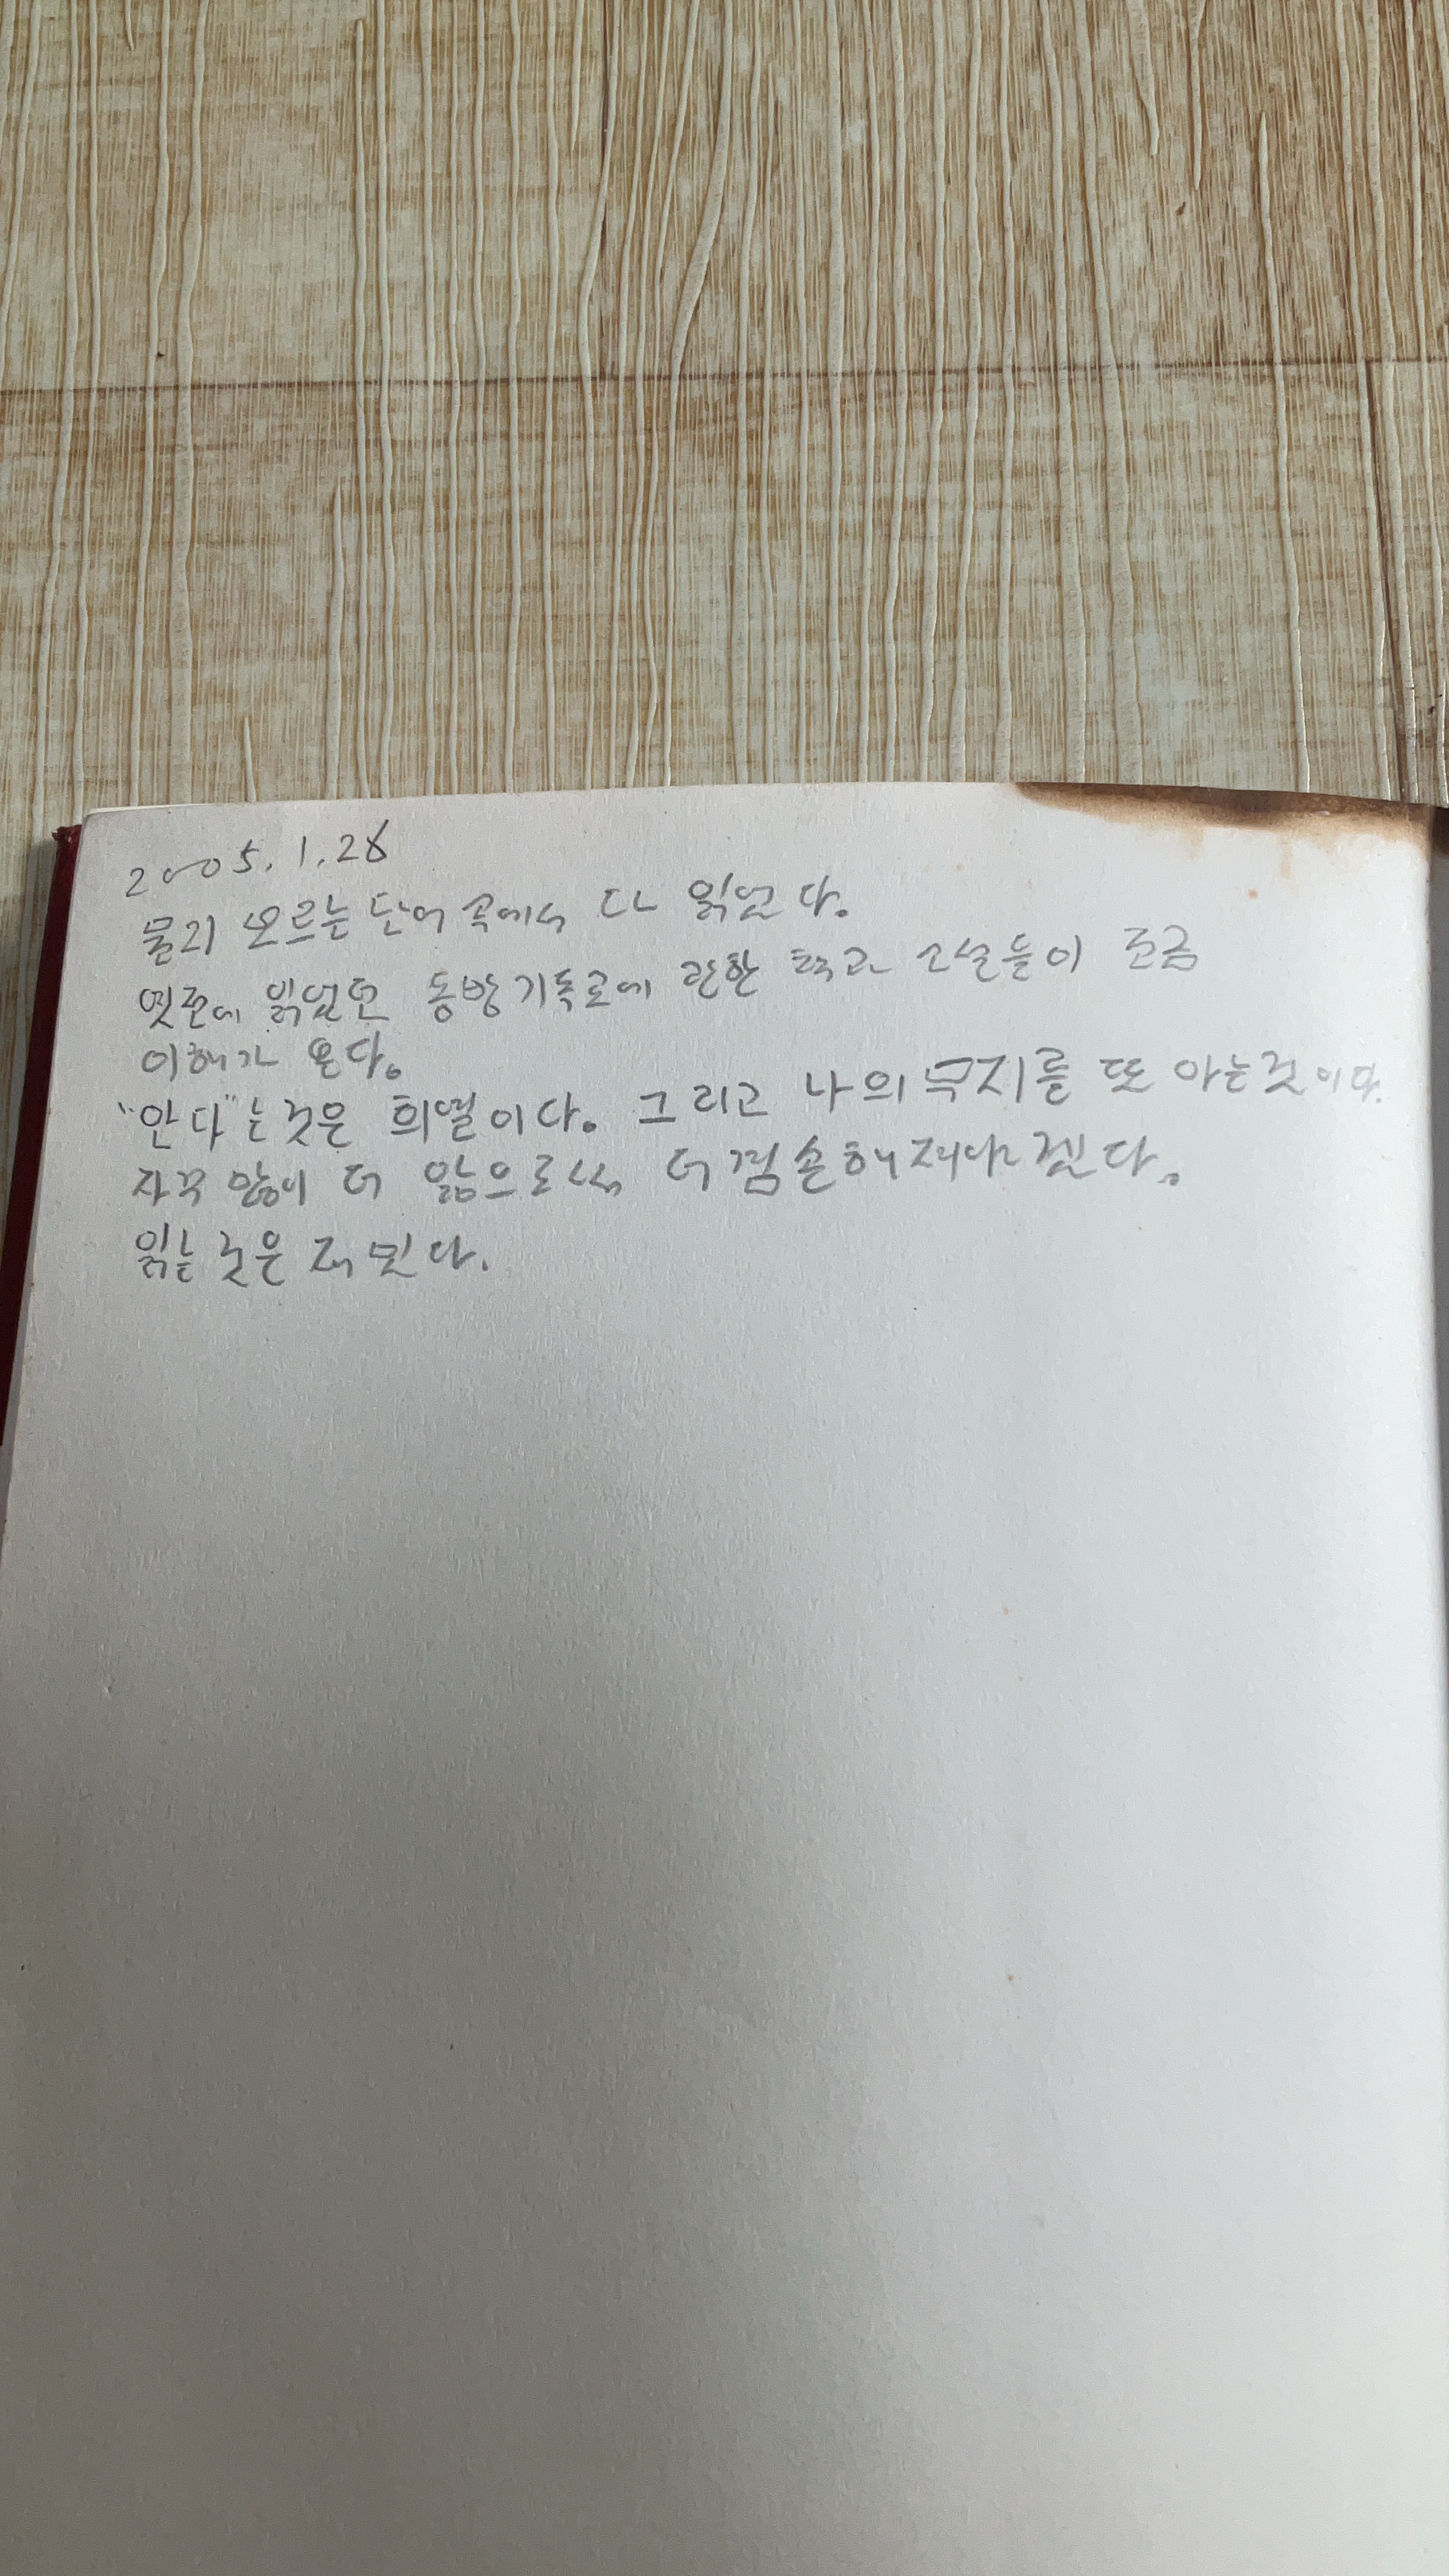 2005. 1. 28
물리 오르는 단어 속에서 다 읽었다.
옛전에 읽었던 동방기독교에 관한 책과 소설들이 조금
이해가 온다.
"안다"는 것은 희열이다. 그리고 나의 무지를 또 아는것이다.
자꾸 많이 더 앎으로써 더 겸손해져야겠다.
읽는 것은 재밋다.